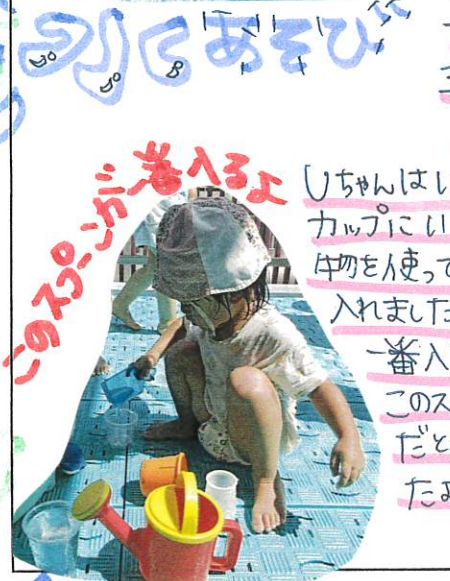 あそび
このスプーンが一番入るよ
Uちゃんはい
カップにい
物を使って
入れました
一番入
このス
だと
たよ